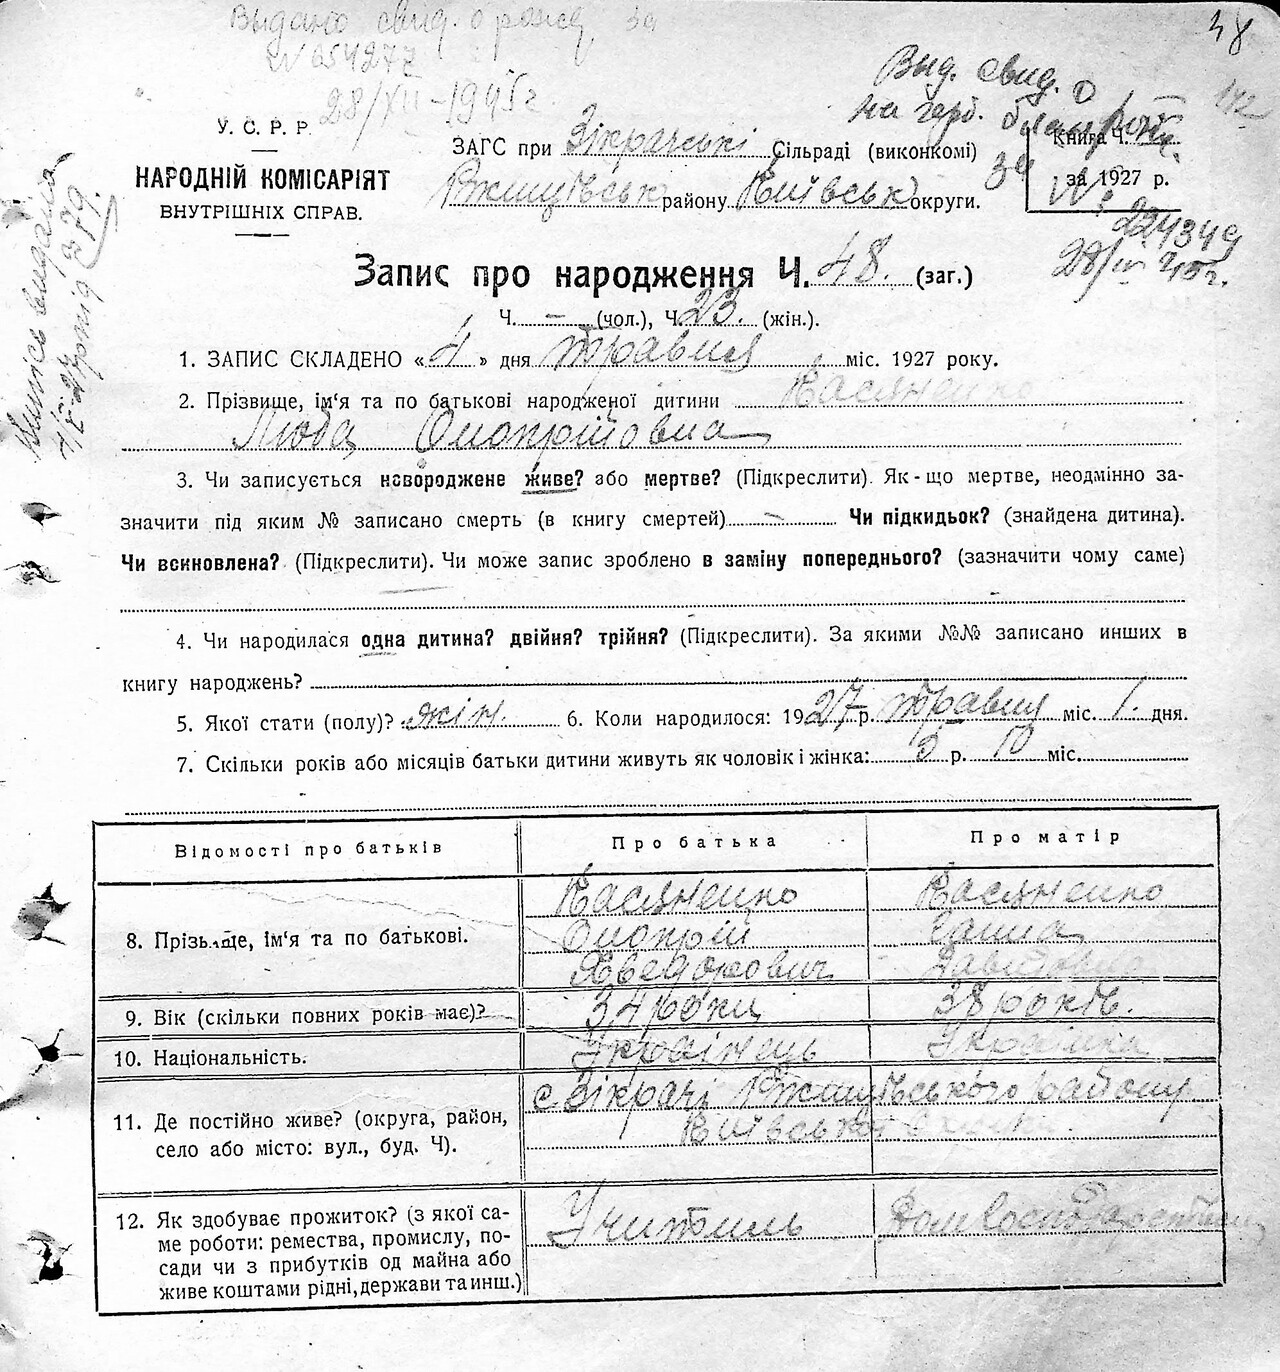 Выдано свид. о рожд. за
N 054277
28/XII-1945г.
48
Выд. свид. о
на герб.
за N:
224349
28/III 45г.
142
У. С. Р. Р.
НАРОДНІЙ КОМІСАРІЯТ
ВНУТРІШНІХ СПРАВ.
ЗАГС при Зікрачські Сільраді (виконкомі)
Ржищівськ району Київськ округи.
Книга Ч.
за 1927 р.
Запис про народження Ч. 48. (заг.)
Ч. – (чол.), Ч. 23. (жін.).
1. ЗАПИС СКЛАДЕНО «4» дня травня міс. 1927 року.
2. Прізвище, ім'я та по батькові народженої дитини Касяненко
Люба Онопріївна
3. Чи записується новороджене живе? або мертве? (Підкреслити). Як-що мертве, неодмінно за-
значити під яким № записано смерть (в книгу смертей) – Чи підкидьок? (знайдена дитина).
Чи всиновлена? (Підкреслити). Чи може запис зроблено в заміну попереднього? (зазначити чому саме)
4. Чи народилася одна дитина? двійня? трійня? (Підкреслити). За якими №№ записано инших в
книгу народжень?
5. Якої стати (полу)? жін. 6. Коли народилося: 1927 р. травня міс. 1. дня.
7. Скільки років або місяців батьки дитини живуть як чоловік і жінка: 3 р. 10 міс.
Відомості про батьків Про батька Про матір
8. Прізвище, ім'я та по батькові. Касяненко Касяненко
Онопрій Ганна
Хведорович Давидовна
9. Вік (скільки повних років має)? 34 роки 38 років.
10. Національність. Українець Українка
11. Де постійно живе? (округа, район, с. Зікрачі Ржищівського району
село або місто: вул., буд. Ч). Київської округи.
12. Як здобуває прожиток? (з якої са- Учитель Домгосподарством
ме роботи: ремества, промислу, по-
сади чи з прибутків од майна або
живе коштами рідні, держави та инш.)